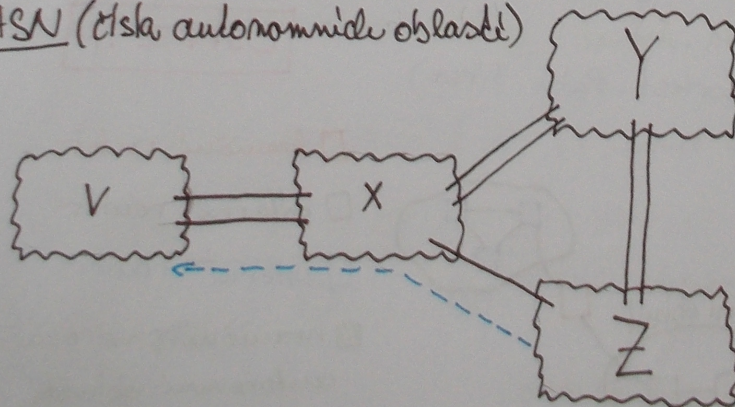 ASN (čísla autonomních oblastí)
Y
V
X
Z